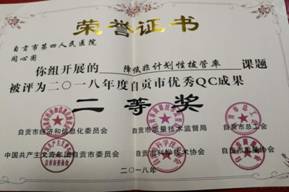 荣誉证书
自贡市第四人民医院
同心圈
你组开展的 降低非计划性拔管率 课题
被评为二〇一八年度自贡市优秀QC成果
二等奖
自贡市经济和信息化委员会 自贡市质量技术监督局 自贡市总工会
中国共产主义青年团自贡市委员会 自贡市科学技术协会
二〇一八年